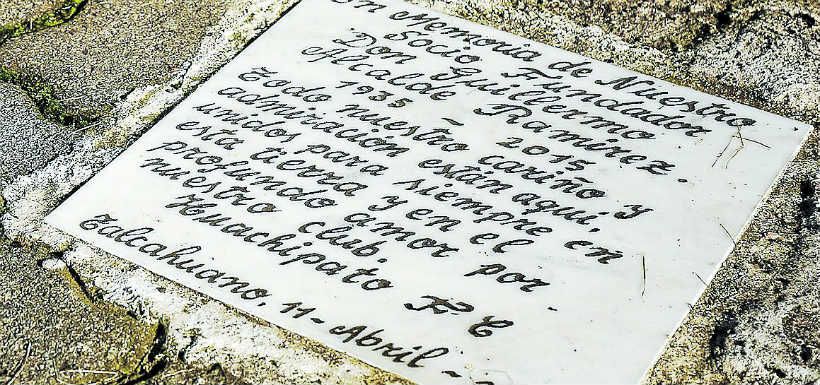 En Memoria de Nuestro
Socio Fundador
"Don Guillermo
Alcalde Ramirez.
1935 - 2015
Todo nuestro cariño y
admiración están aqui,
unidos para siempre en
esta tierra y en el
profundo amor por
nuestro club.
Huachipato F C
Talcahuano, 11 - Abril -